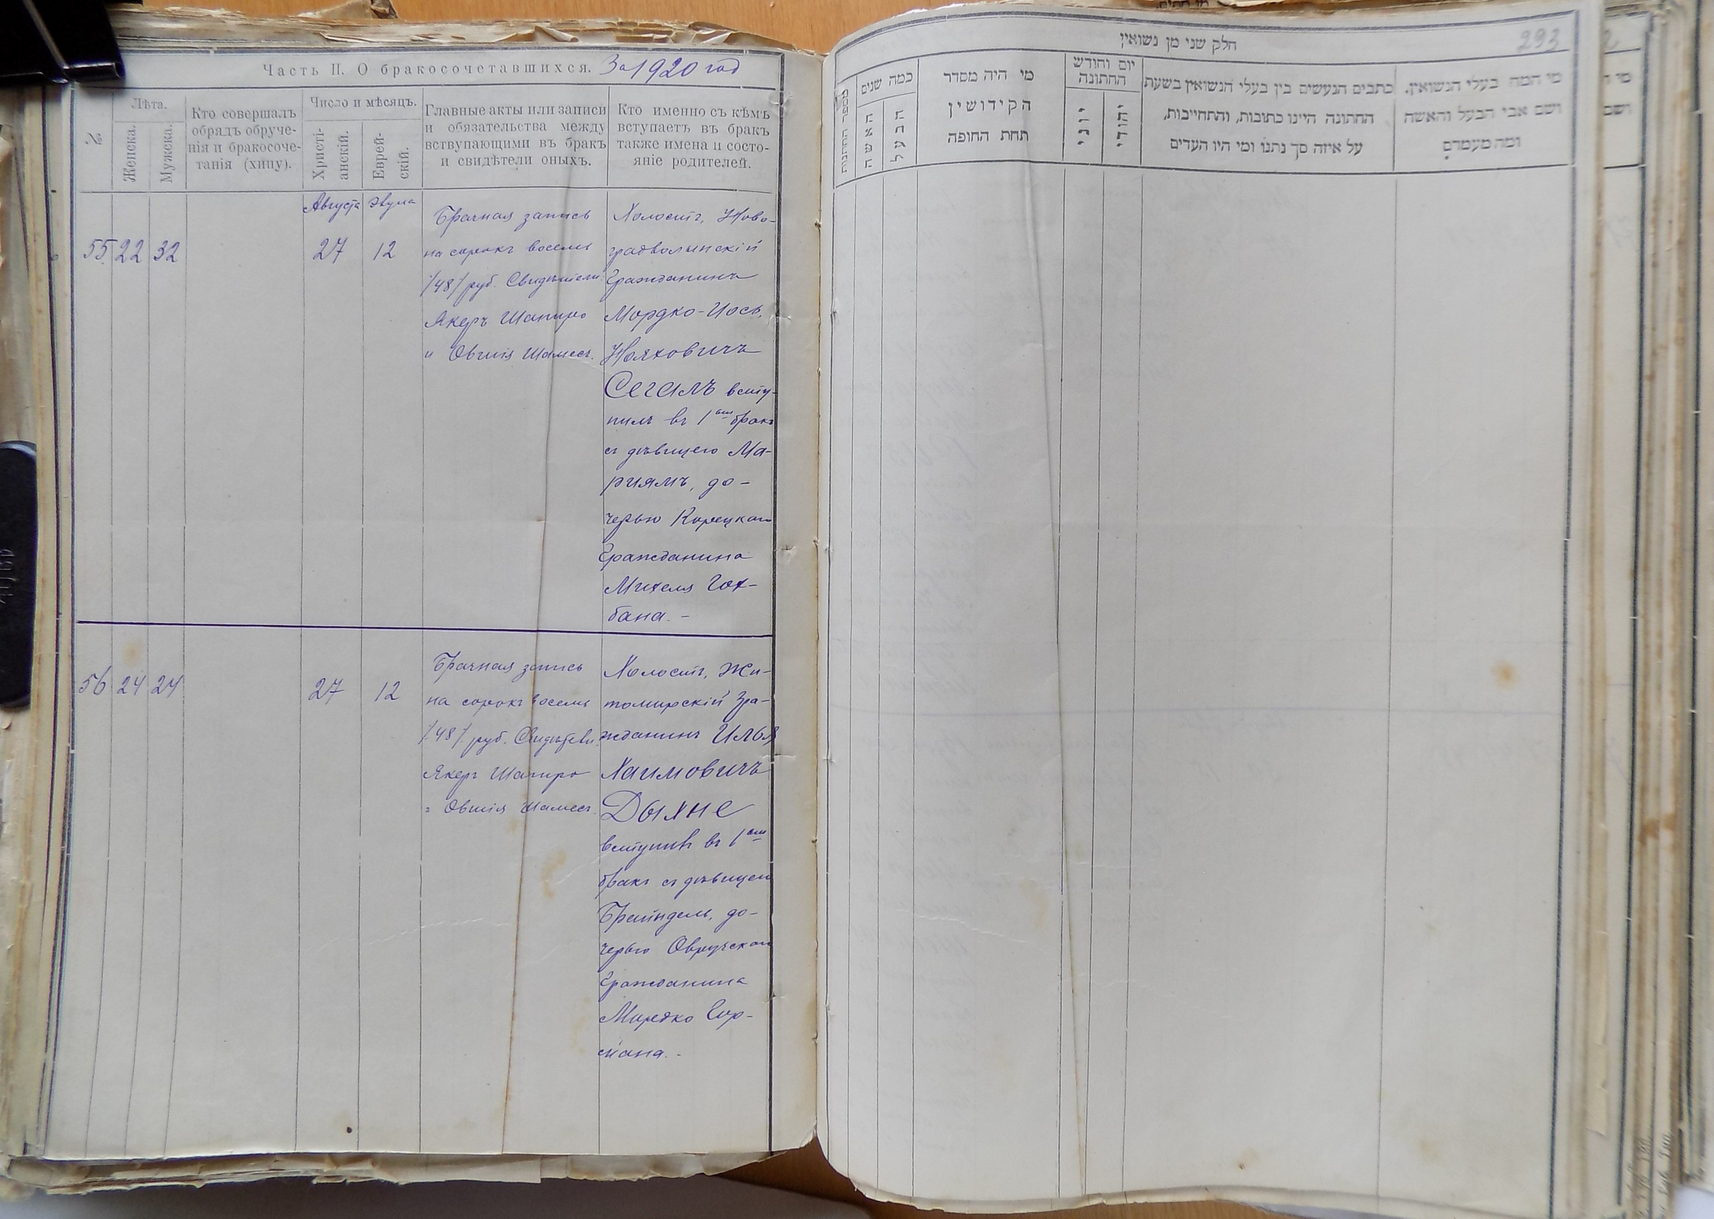 Часть II. О бракосочетавшихся. За 1920 год
№
Лѣта.
Женска.
Мужска.
Кто совершалъ
обрядъ обруче-
нія и бракосоче-
танія (хипу).
Число и мѣсяцъ.
Христі-
анскій.
Еврей-
скій.
Главные акты или записи
и обязательства между
вступающими въ бракъ
и свидѣтели оныхъ.
Кто именно съ кѣмъ
вступаетъ въ бракъ
также имена и состо-
яніе родителей.
Августа Элула
55 22 32 27 12
Брачная запись
на сорокъ восемь
/48/ руб. Свидѣтели
Якеръ Шапиро
и Овшія Шамесъ.
Холостъ, Ново-
градволынскій
Гражданинъ
Мордко-Іось
Нояховичъ
Сегалъ всту-
пилъ въ 1ый бракъ
съ дѣвицею Ма-
ріямъ, до-
черью Корецкаго
Гражданина
Михеля Гох-
бана. -
56 24 24 27 12
Брачная запись
на сорокъ восемь
/48/ руб. Свидѣтели
Якеръ Шапиро
и Овшія Шамесъ.
Холостъ, Жи-
томирскій Гра-
жданинъ Илья
Хаимовичъ
Дыхне
вступилъ въ 1ый
бракъ съ дѣвицею
Брейндель, до-
черью Овручскаго
Гражданина
Мордко
חלק שני מן נשואין
293
מספר החתונות
כמה שנים
האשה
הבעל
מי היה מסדר
הקידושין
תחת החופה
יום וחודש
החתונה
יוני
יהודי
כתבים הנעשים בין בעלי הנשואין בשעת
החתונה היינו כתובות, והתחייבות,
על איזה סך נתנו ומי היו העדים
מי המה בעלי הנשואין,
ושם אבי הבעל והאשה
ומה מעמדם